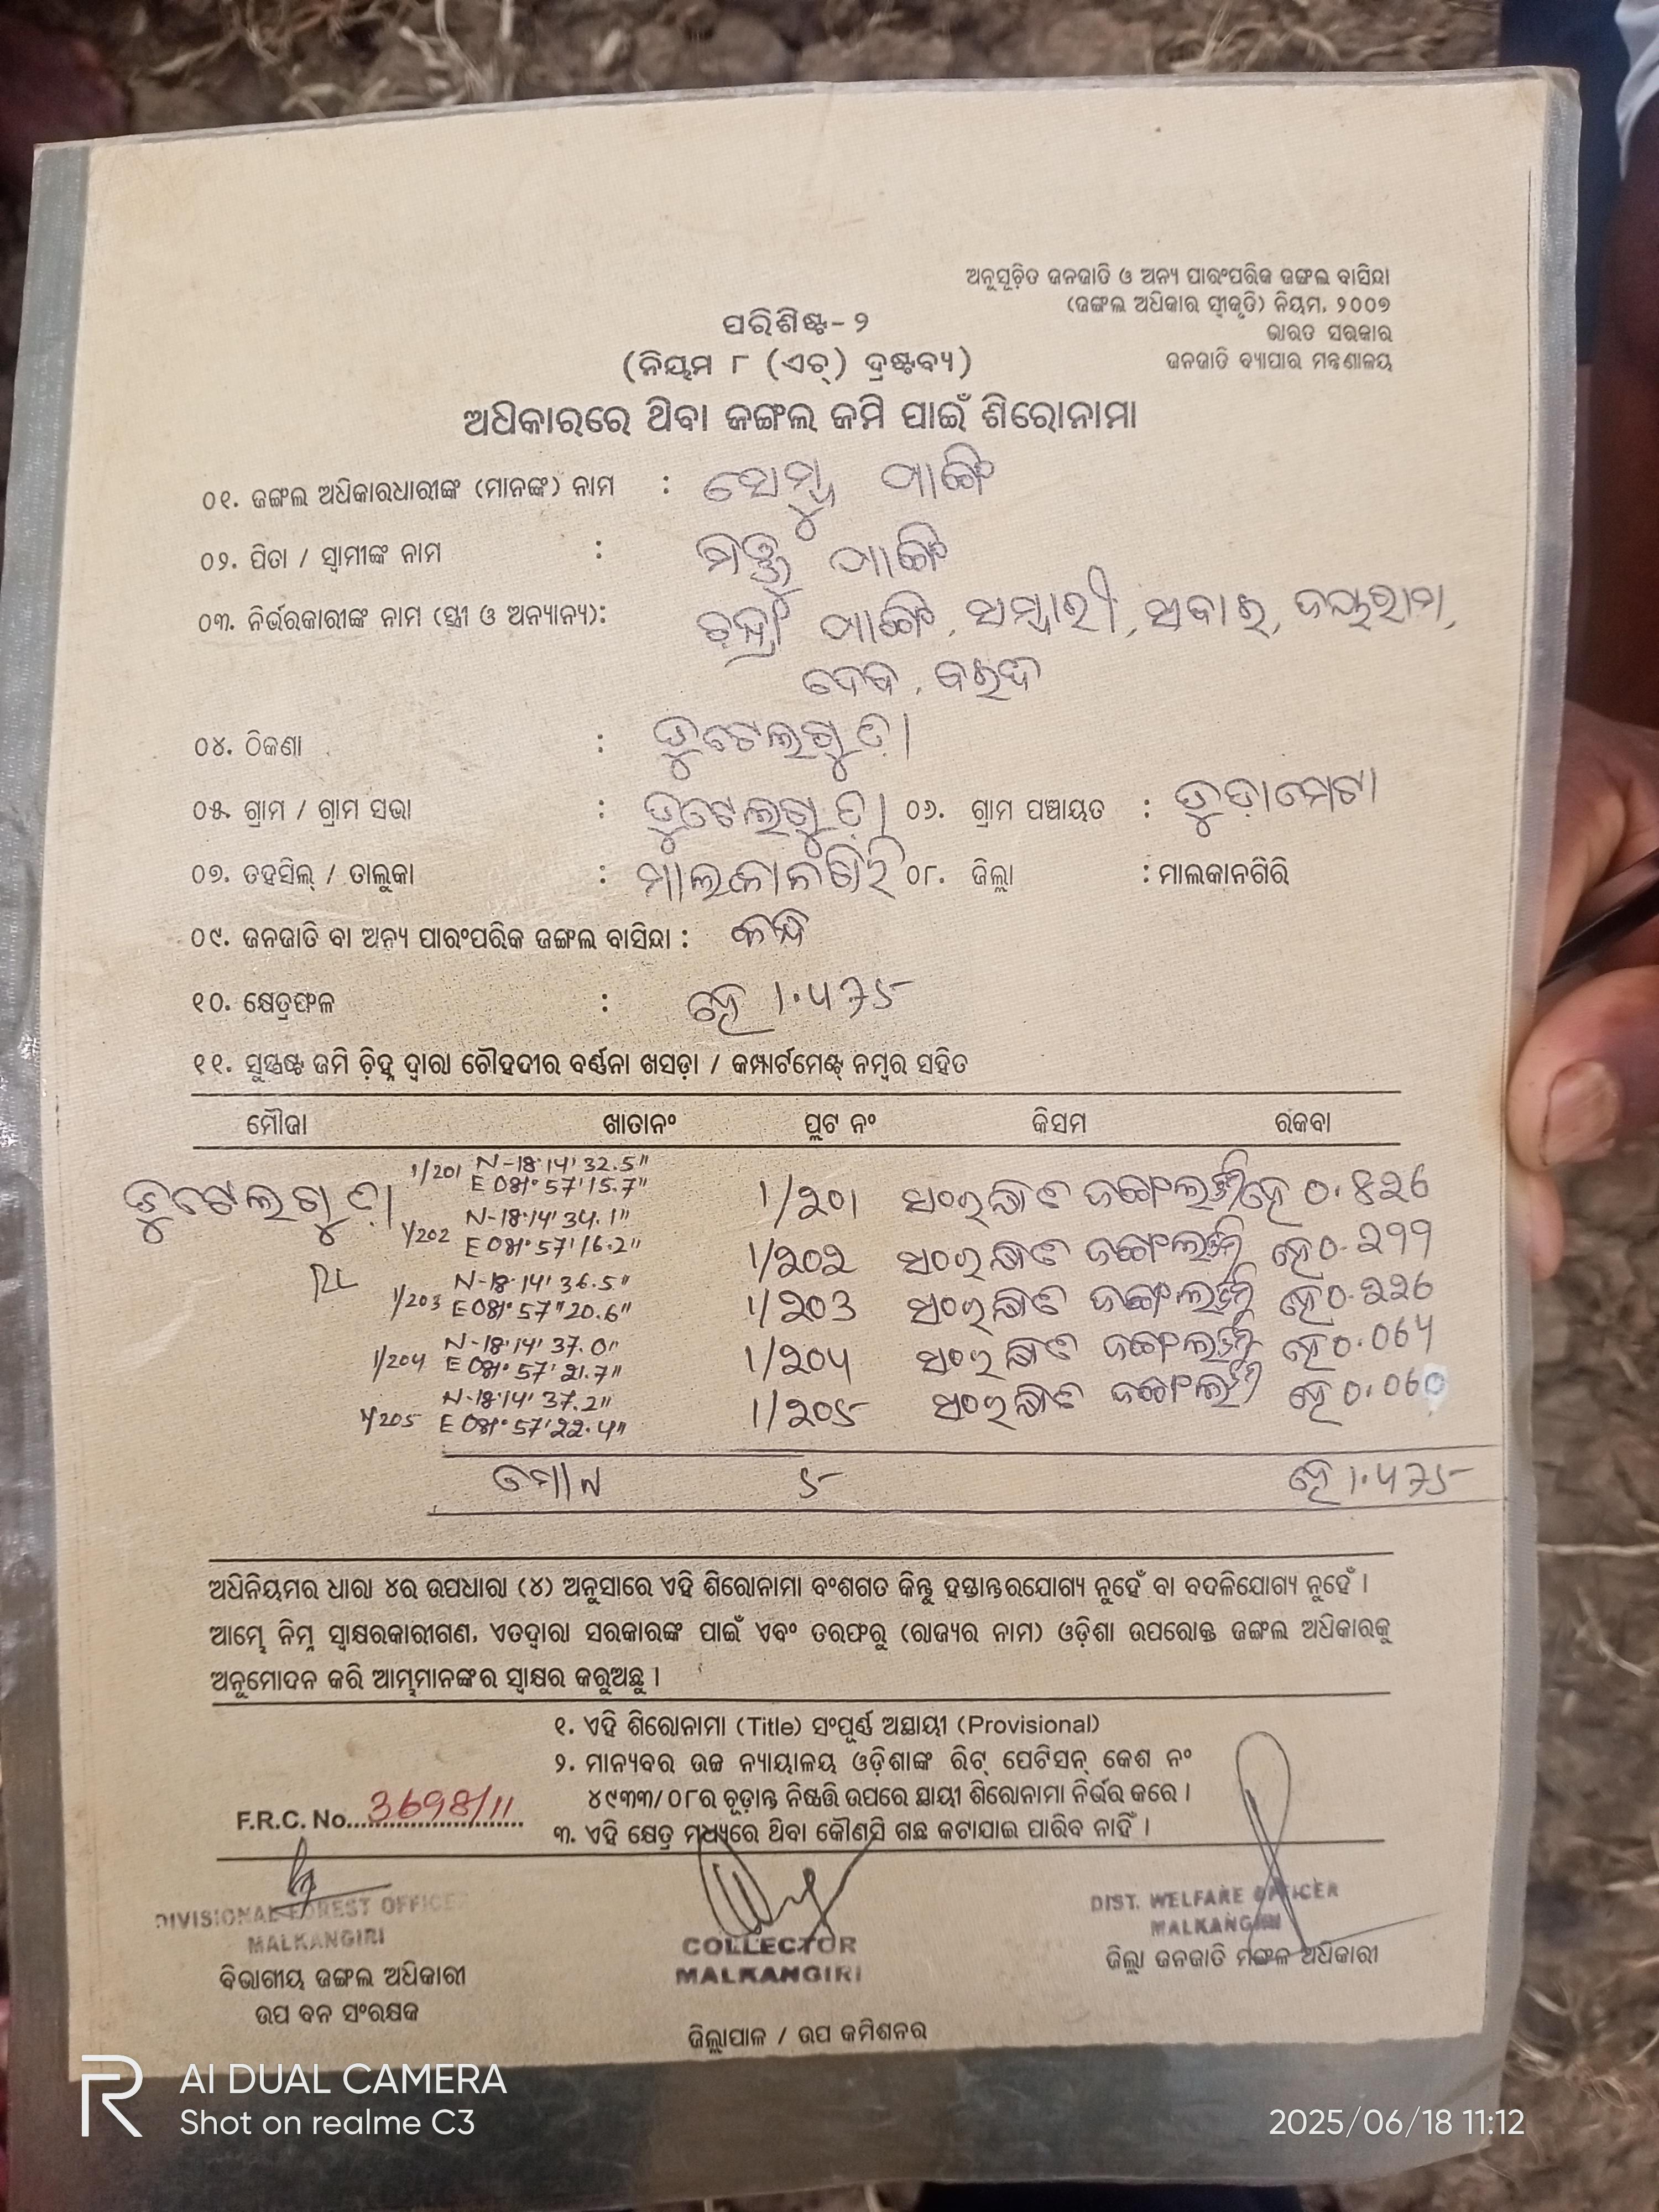 ଅନୁସୂଚିତ ଜନଜାତି ଓ ଅନ୍ୟ ପାରଂପରିକ ଜଙ୍ଗଲ ବାସିନ୍ଦା
(ଜଙ୍ଗଲ ଅଧିକାର ସ୍ୱୀକୃତି) ନିୟମ, ୨୦୦୭
ଭାରତ ସରକାର
ଜନଜାତି ବ୍ୟାପାର ମନ୍ତ୍ରଣାଳୟ
ପରିଶିଷ୍ଟ-୨
(ନିୟମ ୮ (ଏଚ୍) ଦ୍ରଷ୍ଟବ୍ୟ)
ଅଧିକାରରେ ଥିବା ଜଙ୍ଗଲ ଜମି ପାଇଁ ଶିରୋନାମା
୦୧. ଜଙ୍ଗଲ ଅଧିକାରଧାରୀଙ୍କ (ମାନଙ୍କ) ନାମ :
୦୨. ପିତା / ସ୍ୱାମୀଙ୍କ ନାମ :
୦୩. ନିର୍ଭରକାରୀଙ୍କ ନାମ (ସ୍ତ୍ରୀ ଓ ଅନ୍ୟାନ୍ୟ): ଜୟରାମ,
ଦେବ,
୦୪. ଠିକଣା : ତୁଟେଲଗୁଡ଼ା
୦୫. ଗ୍ରାମ / ଗ୍ରାମ ସଭା : ତୁଟେଲଗୁଡ଼ା ୦୬. ଗ୍ରାମ ପଞ୍ଚାୟତ :
୦୭. ତହସିଲ୍ / ତାଲୁକା : ମାଲକାନଗିରି ୦୮. ଜିଲ୍ଲା : ମାଲକାନଗିରି
୦୯. ଜନଜାତି ବା ଅନ୍ୟ ପାରଂପରିକ ଜଙ୍ଗଲ ବାସିନ୍ଦା :
୧୦. କ୍ଷେତ୍ରଫଳ : ହେ
୧୧. ସୁସ୍ପଷ୍ଟ ଜମି ଚିହ୍ନ ଦ୍ୱାରା ଚୌହଦୀର ବର୍ଣ୍ଣନା ଖସଡ଼ା / କମ୍ପାର୍ଟମେଣ୍ଟ୍ ନମ୍ବର ସହିତ
ମୌଜା ଖାତାନଂ ପ୍ଲଟ ନଂ କିସମ ରକବା
ତୁଟେଲଗୁଡ଼ା 1/201 N-18°14'32.5" E 081°57'15.7" 1/201 ସଂରକ୍ଷିତ ହେ
1/202 N-18°14'34.1" E 081°57'16.2" 1/202 ସଂରକ୍ଷିତ ହେ
1/203 N-18°14'36.5" E 081°57"20.6" 1/203 ସଂରକ୍ଷିତ ହେ
1/204 N-18°14'37.0" E 081°57'21.7" ସଂରକ୍ଷିତ ହେ
1/205 N-18°14'37.2" E 081°57'22.4" ସଂରକ୍ଷିତ ହେ
ହେ
ଅଧିନିୟମର ଧାରା ୪ର ଉପଧାରା (୪) ଅନୁସାରେ ଏହି ଶିରୋନାମା ବଂଶଗତ କିନ୍ତୁ ହସ୍ତାନ୍ତରଯୋଗ୍ୟ ନୁହେଁ ବା ବଦଳିଯୋଗ୍ୟ ନୁହେଁ ।
ଆମ୍ଭେ ନିମ୍ନ ସ୍ୱାକ୍ଷରକାରୀଗଣ, ଏତଦ୍ୱାରା ସରକାରଙ୍କ ପାଇଁ ଏବଂ ତରଫରୁ (ରାଜ୍ୟର ନାମ) ଓଡ଼ିଶା ଉପରୋକ୍ତ ଜଙ୍ଗଲ ଅଧିକାରକୁ
ଅନୁମୋଦନ କରି ଆମ୍ଭମାନଙ୍କର ସ୍ୱାକ୍ଷର କରୁଅଛୁ ।
୧. ଏହି ଶିରୋନାମା (Title) ସଂପୂର୍ଣ୍ଣ ଅସ୍ଥାୟୀ (Provisional)
୨. ମାନ୍ୟବର ଉଚ୍ଚ ନ୍ୟାୟାଳୟ ଓଡ଼ିଶାଙ୍କ ରିଟ୍ ପେଟିସନ୍ କେଶ ନଂ
୪୯୩୩/୦୮ର ଚୂଡ଼ାନ୍ତ ନିଷ୍ପତ୍ତି ଉପରେ ସ୍ଥାୟୀ ଶିରୋନାମା ନିର୍ଭର କରେ ।
F.R.C. No. 3698/11
୩. ଏହି କ୍ଷେତ୍ର ମଧ୍ୟରେ ଥିବା କୌଣସି ଗଛ କଟାଯାଇ ପାରିବ ନାହିଁ ।
DIVISIONAL FOREST OFFICER
MALKANGIRI
ବିଭାଗୀୟ ଜଙ୍ଗଲ ଅଧିକାରୀ
ଉପ ବନ ସଂରକ୍ଷକ
COLLECTOR
MALKANGIRI
ଜିଲ୍ଲାପାଳ / ଉପ କମିଶନର
DIST. WELFARE OFFICER
MALKANGIRI
ଜିଲ୍ଲା ଜନଜାତି ମଙ୍ଗଳ ଅଧିକାରୀ
R AI DUAL CAMERA
Shot on realme C3
2025/06/18 11:12